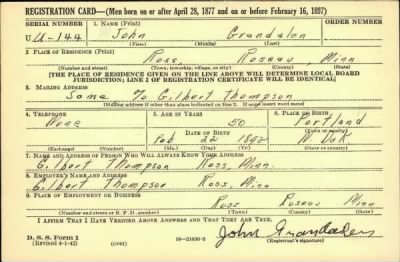 REGISTRATION CARD—(Men born on or after April 28, 1877 and on or before February 16, 1897)
SERIAL NUMBER 1. NAME (Print) ORDER NUMBER
U U-144 John Grandalen
(First) (Middle) (Last)
2. PLACE OF RESIDENCE (Print)
Ross, Roseau, Minn
(Number and street) (Town, township, village, or city) (County) (State)
[THE PLACE OF RESIDENCE GIVEN ON THE LINE ABOVE WILL DETERMINE LOCAL BOARD
JURISDICTION; LINE 2 OF REGISTRATION CERTIFICATE WILL BE IDENTICAL]
3. MAILING ADDRESS
Same % Gilbert Thompson
[Mailing address if other than place indicated on line 2. If same insert word same]
4. TELEPHONE 5. AGE IN YEARS 6. PLACE OF BIRTH
None 50 Portland
DATE OF BIRTH (Town or county)
Feb 22 1892 N. Dak
(Exchange) (Number) (Mo.) (Day) (Yr.) (State or country)
7. NAME AND ADDRESS OF PERSON WHO WILL ALWAYS KNOW YOUR ADDRESS
Gilbert Thompson Ross, Minn.
8. EMPLOYER'S NAME AND ADDRESS
Gilbert Thompson Ross, Minn
9. PLACE OF EMPLOYMENT OR BUSINESS
Ross Roseau Minn
(Number and street or R. F. D. number) (Town) (County) (State)
I AFFIRM THAT I HAVE VERIFIED ABOVE ANSWERS AND THAT THEY ARE TRUE.
D. S. S. Form 1
(Revised 4-1-42) (over) 16—21630-2 John Grandalen
(Registrant's signature)